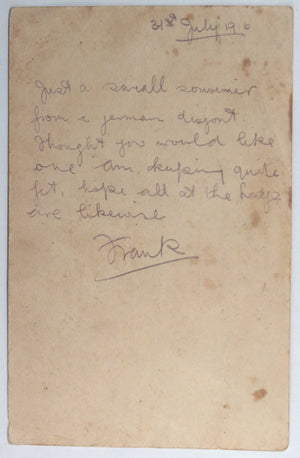 31st July 1916
Just a small souvenir
from a german
thought you would like
one am keeping quite
fit, hope all at the
are likewise
Frank